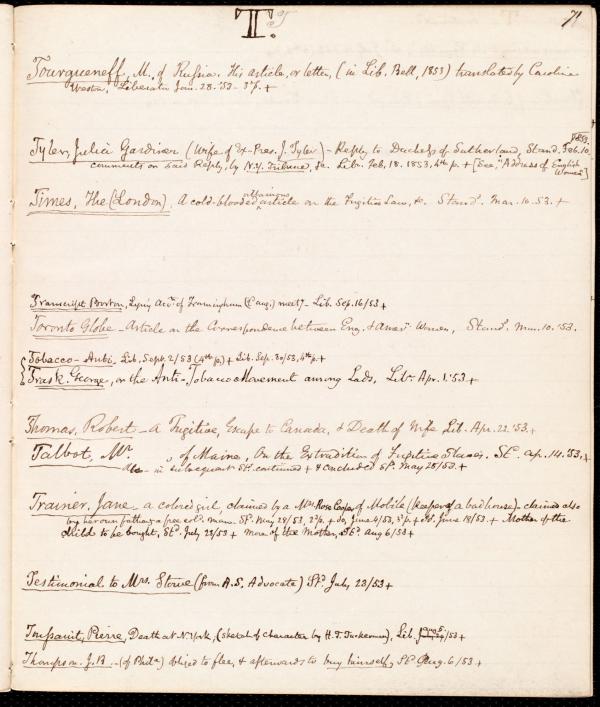 T.
71
Tourgueneff, M. of Russia. His article, or letter, (in Lib. Bell, 1853) translated by Caroline
Weston, Liberator Jan. 28. '53 - 3d p. +
1853
Tyler, Julia Gardiner (Wife of Ex-Pres. J. Tyler) - Reply to Duchess of Sutherland, Stand. Feb. 10
comments on said Reply, by N.Y. Tribune, &c. Libr. Feb. 18. 1853, 4th p. + [See, "Address of English
Women"]
Times, The (London), A cold-blooded article on the Fugitive Law, &c. Stand. Mar. 10. 53. +
Transcript Boston, Lying Acct. of Framingham (1 aug.) meetg - Lib. Sep. 16/53 +
Toronto Globe - Article on the Correspondence between Eng. & Amer. Women, Stand. Mar. 10. '53.
Tobacco - Anti - Lib. Sept. 2/53 (4th p.) + Lib. Sep. 30/53, 4th p. +
Trask. George, on the Anti-Tobacco Movement among Lads, Libr. Apr. 1. '53 +
Thomas, Robert - A Fugitive, Escape to Canada, & Death of Wife Lib. Apr. 22. '53. +
Talbot, Mr. , of Maine, On the Extradition of Fugitive Slaves. St. Ap. 14. '53. +
Also - in subsequent Sts. continued + & concluded St. May 28/53. +
Trainer, Jane - a colored girl, claimed by a Mrs. Rose Cooper of Mobile (keeper of a bad house) - claimed also
by her own father, a free cold. man. St. May 28/53, 2d p. + do, June 4/53, 3d p. + St. June 18/53 + Mother of the
child to be bought, St. July 23/53 + more of the Mother, St. Aug 6/53 +
Testimonial to Mrs. Stowe (from A.S. Advocate) St. July 23/53 +
Toussaint, Pierre, Death at N. York, (sketch of character by H.T. Tuckerman), Lib. Aug 5. /53 +
Thompson. J.B. - (of Phila) obliged to flee, & afterwards to buy himself, St. Aug. 6/53 +